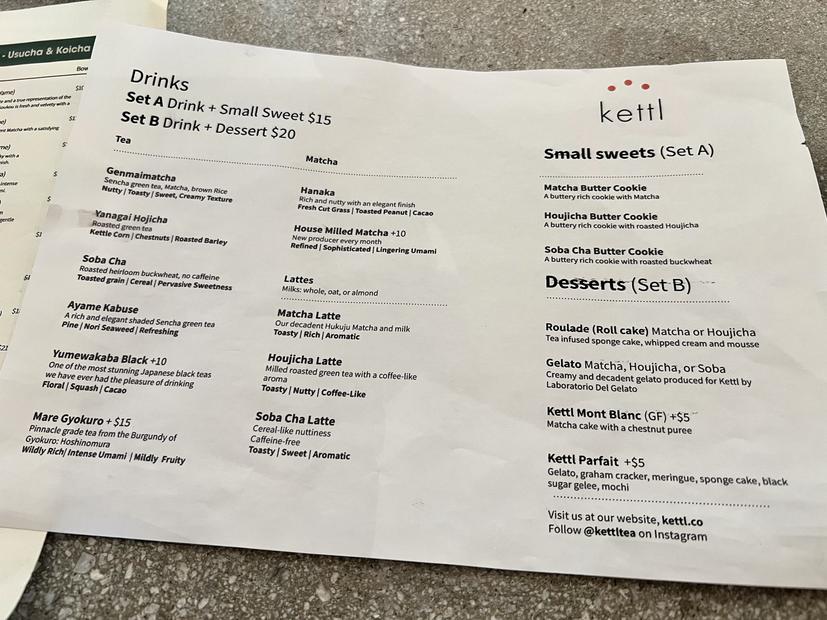 - Usucha & Koicha
Drinks
Set A Drink + Small Sweet $15
Set B Drink + Dessert $20
Tea
Genmaimatcha
Sencha green tea, Matcha, brown Rice
Nutty | Toasty | Sweet, Creamy Texture
Yanagai Hojicha
Roasted green tea
Kettle Corn | Chestnuts | Roasted Barley
Soba Cha
Roasted heirloom buckwheat, no caffeine
Toasted grain | Cereal | Pervasive Sweetness
Ayame Kabuse
A rich and elegant shaded Sencha green tea
Pine | Nori Seaweed | Refreshing
Yumewakaba Black +10
One of the most stunning Japanese black teas
we have ever had the pleasure of drinking
Floral | Squash | Cacao
Mare Gyokuro + $15
Pinnacle grade tea from the Burgundy of
Gyokuro: Hoshinomura
Wildly Rich| Intense Umami | Mildly Fruity
Matcha
Hanaka
Rich and nutty with an elegant finish
Fresh Cut Grass | Toasted Peanut | Cacao
House Milled Matcha +10
New producer every month
Refined | Sophisticated | Lingering Umami
Lattes
Milks: whole, oat, or almond
Matcha Latte
Our decadent Hukuju Matcha and milk
Toasty | Rich | Aromatic
Houjicha Latte
Milled roasted green tea with a coffee-like
aroma
Toasty | Nutty | Coffee-Like
Soba Cha Latte
Cereal-like nuttiness
Caffeine-free
Toasty | Sweet | Aromatic
kettl
Small sweets (Set A)
Matcha Butter Cookie
A buttery rich cookie with Matcha
Houjicha Butter Cookie
A buttery rich cookie with roasted Houjicha
Soba Cha Butter Cookie
A buttery rich cookie with roasted buckwheat
Desserts (Set B)
Roulade (Roll cake) Matcha or Houjicha
Tea infused sponge cake, whipped cream and mousse
Gelato Matcha, Houjicha, or Soba
Creamy and decadent gelato produced for Kettl by
Laboratorio Del Gelato
Kettl Mont Blanc (GF) +$5
Matcha cake with a chestnut puree
Kettl Parfait +$5
Gelato, graham cracker, meringue, sponge cake, black
sugar gelee, mochi
Visit us at our website, kettl.co
Follow @kettltea on Instagram